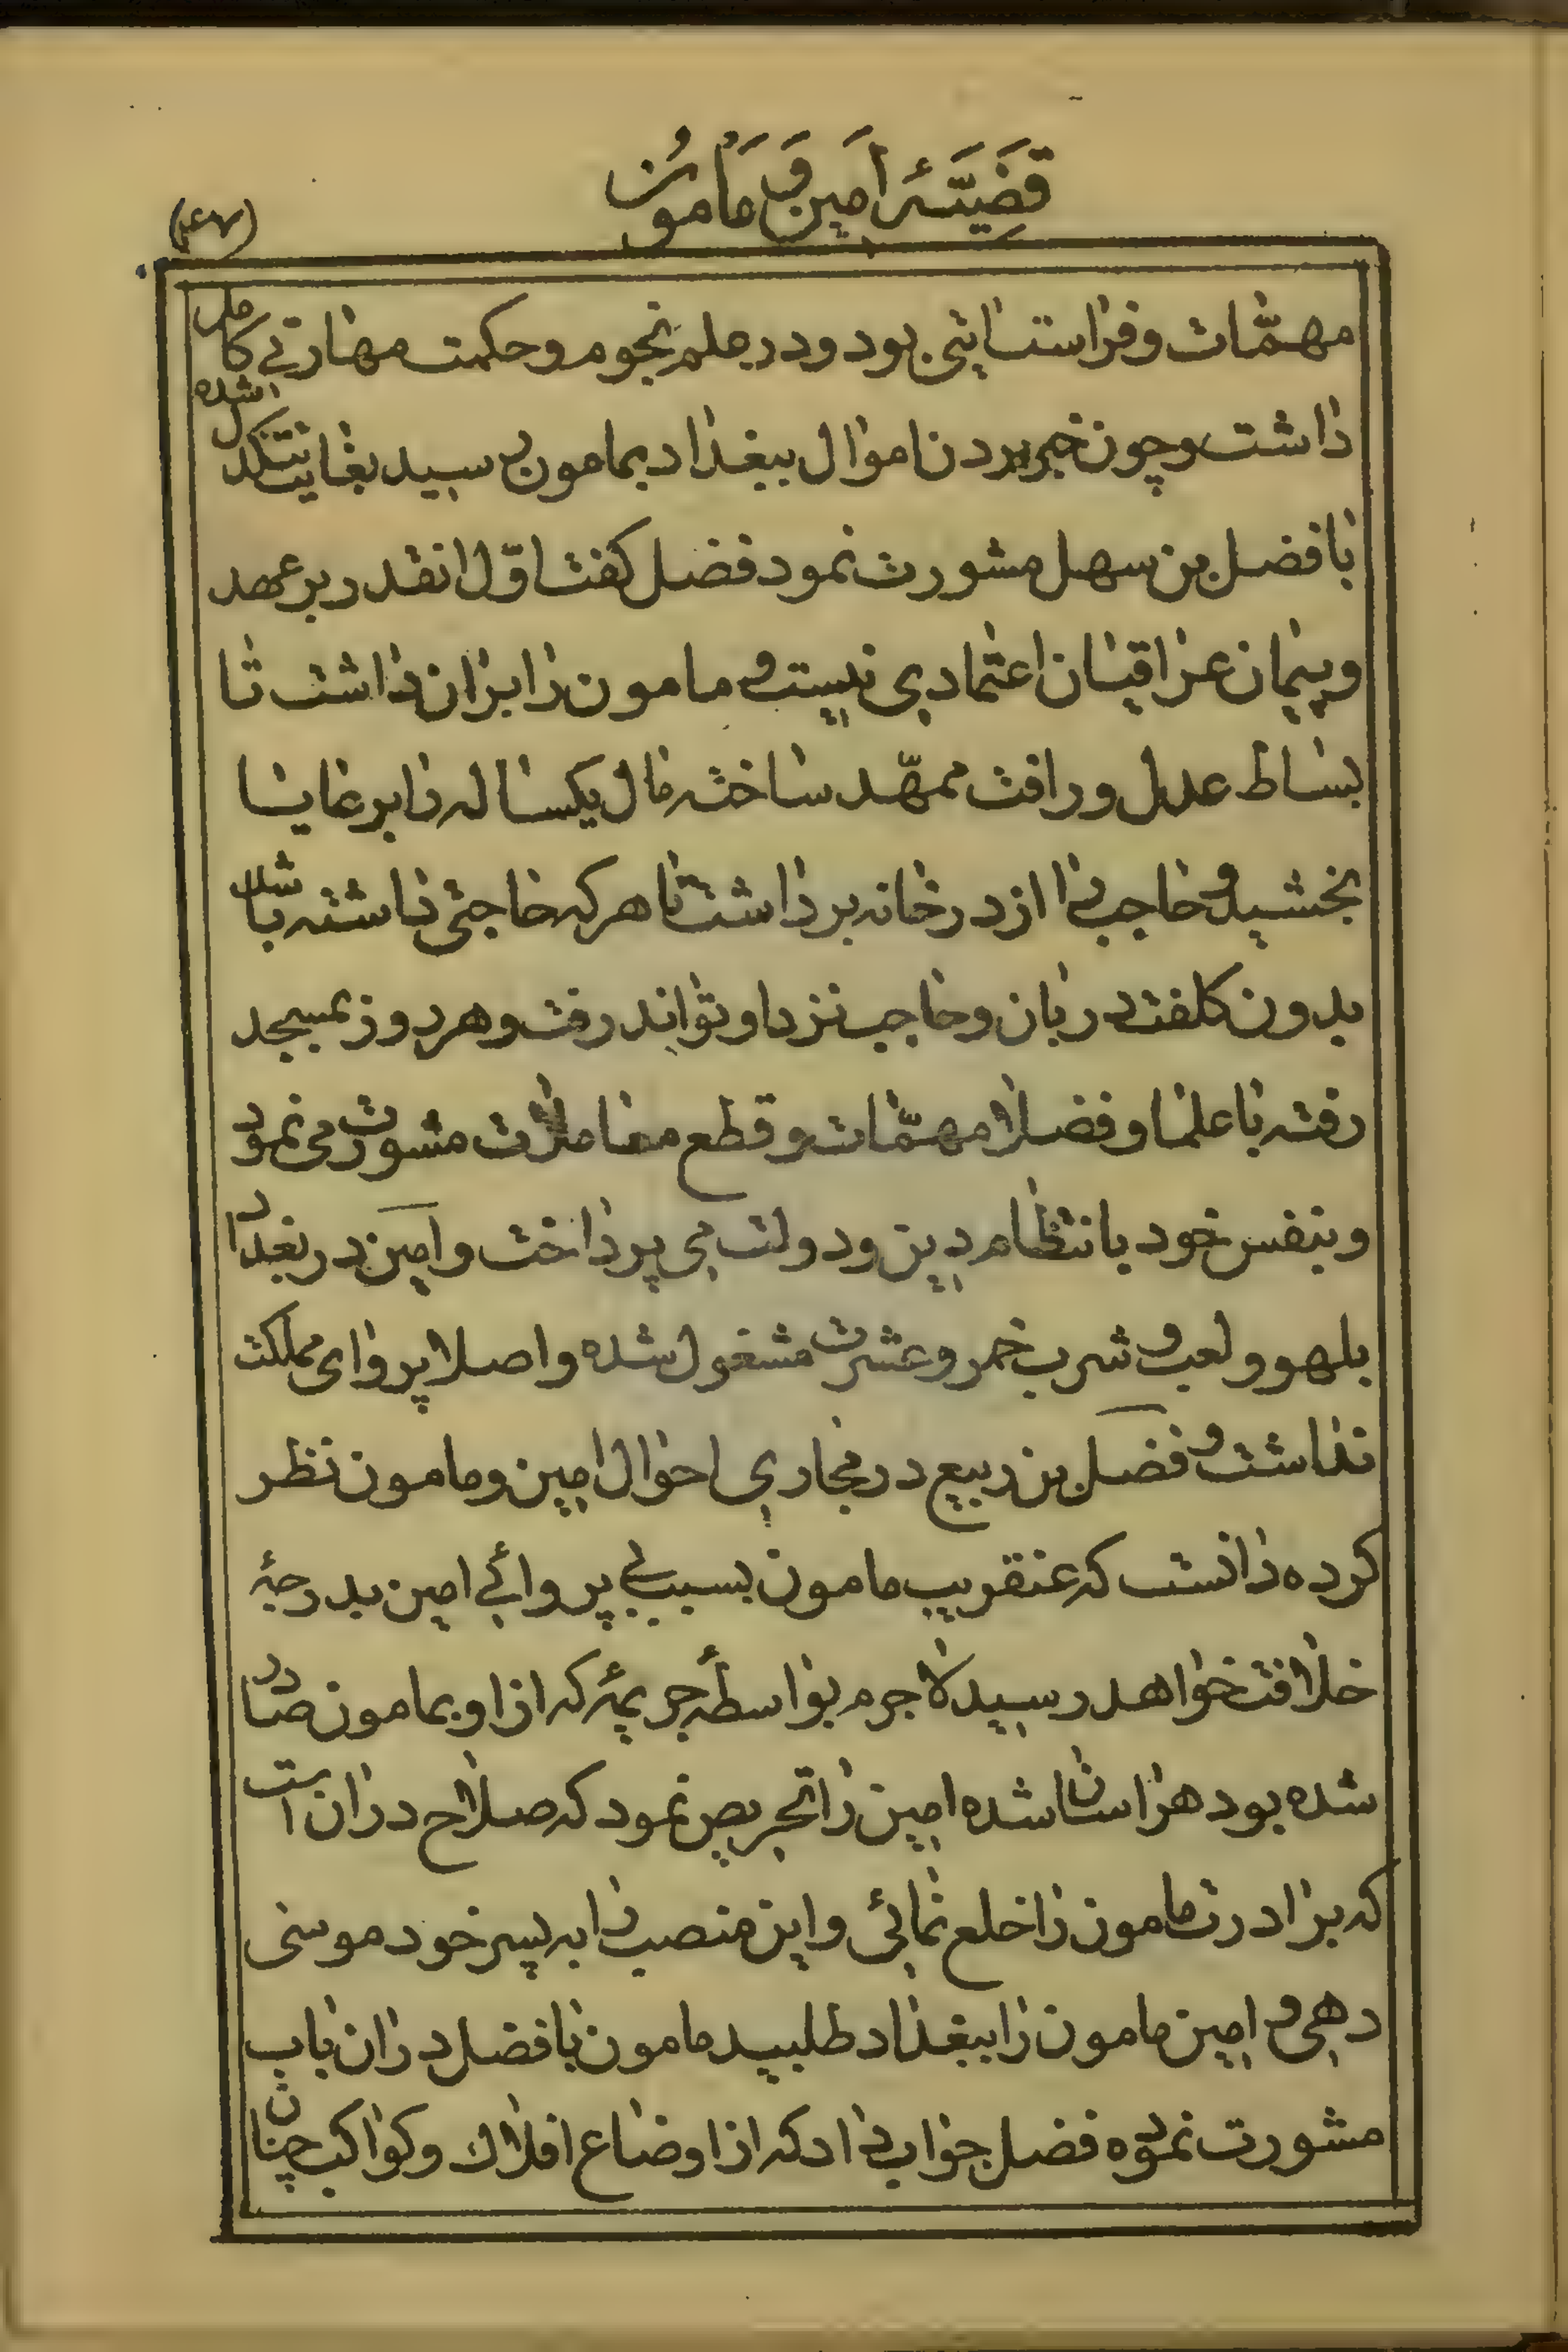 قضیّهٔ امین و مامون
مهمّات و فراست اثنی بود و در علم نجوم و حکمت مهارتی کامل
داشت و چون خبر بردن اموال ببغداد بمامون رسید بغایت تنکدل شده
با فضل بن سهل مشورت نمود فضل کفت اوّل انقدر بر عهد
و پیمان عراقیان اعتمادی نیست و مامون را بران داشت تا
بساط عدل و رافت ممهّد ساخته مال یکساله را برعایا
بخشید و حاجب را از درخانه برداشت تا هر که حاجتی داشته باشد
بدون کلفت دربان و حاجب نزد او تواند رفت و هر روز بمسجد
رفته با علما و فضلا مهمّات و قطع معاملات مشورت می نمود
و بنفس خود بانتظام دین و دولت می پرداخت و امین در بغداد
بلهو و لعب و شرب خمر و عشرت مشغول شده و اصلا پروای مملکت
نداشت و فضل بن ربیع در مجاری احوال امین و مامون نظر
کرده دانست که عنقریب مامون بسبب بی پروائی امین بدرجهٔ
خلافت خواهد رسید لاجرم بواسطهٔ جریمهٔ که از او بمامون صادر
شده بود هراسان شده امین را تحریص نمود که صلاح دران است
که برادرت مامون را خلع نمائی و این منصب را به پسر خود موسی
دهی و امین مامون را ببغداد طلبید مامون با فضل دران باب
مشورت نموده فضل جواب داد که از اوضاع افلاک و کواکب چنان